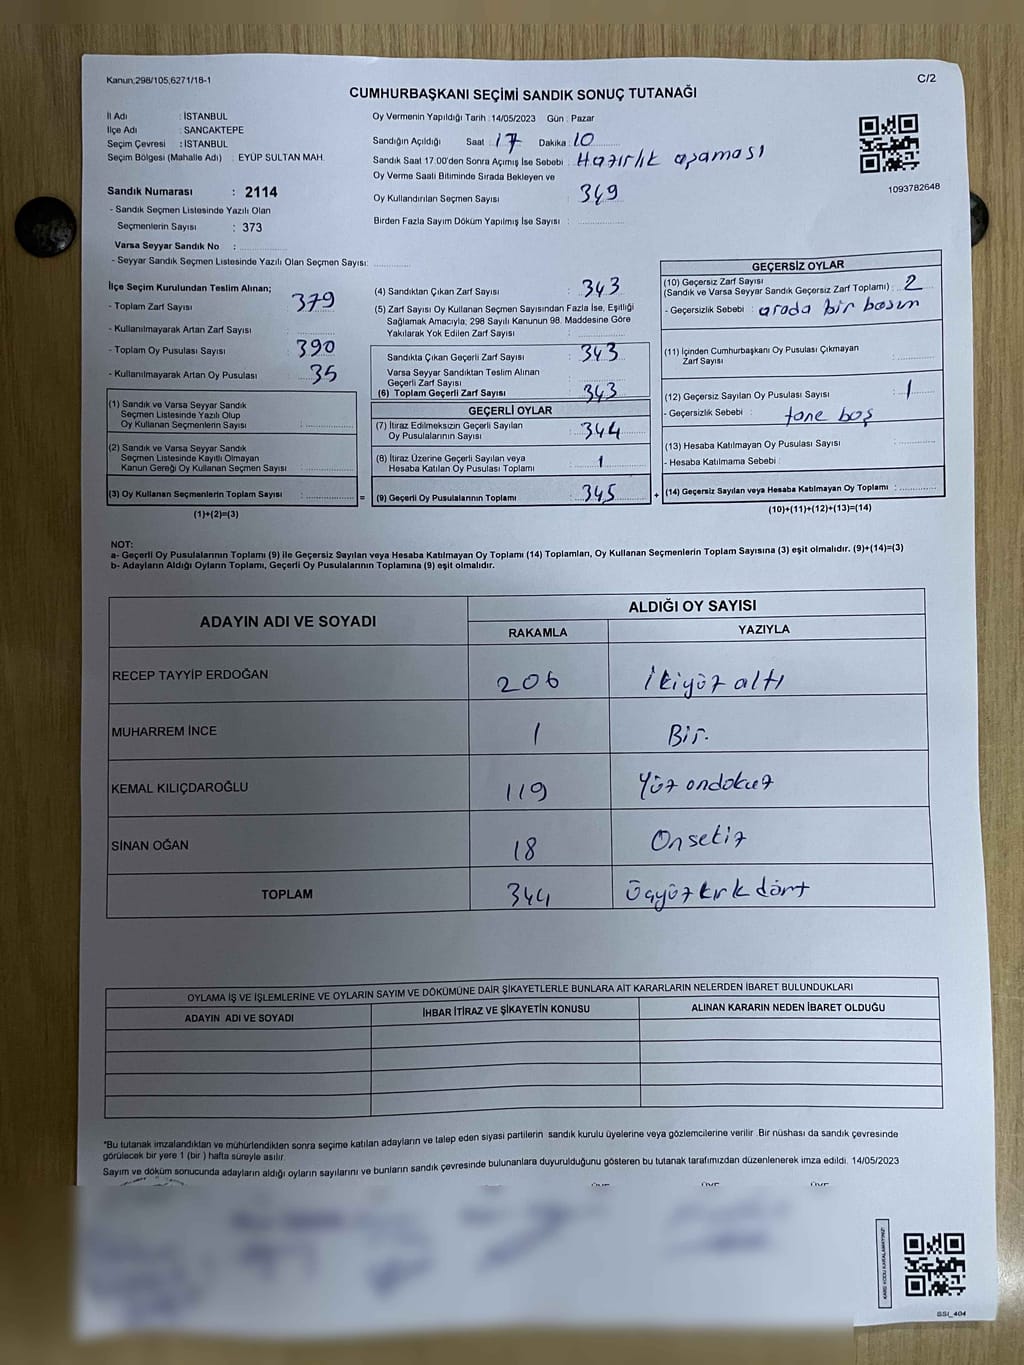 Kanun;298/105,6271/18-1
C/2
CUMHURBAŞKANI SEÇİMİ SANDIK SONUÇ TUTANAĞI
İl Adı : İSTANBUL
İlçe Adı : SANCAKTEPE
Seçim Çevresi : İSTANBUL
Seçim Bölgesi (Mahalle Adı) : EYÜP SULTAN MAH.
Sandık Numarası : 2114
- Sandık Seçmen Listesinde Yazılı Olan
Seçmenlerin Sayısı : 373
Varsa Seyyar Sandık No :
- Seyyar Sandık Seçmen Listesinde Yazılı Olan Seçmen Sayısı:
Oy Vermenin Yapıldığı Tarih :14/05/2023 Gün : Pazar
Sandığın Açıldığı Saat : 17 Dakika : 10
Sandık Saat 17.00'den Sonra Açımış İse Sebebi : Hazırlık aşaması
Oy Verme Saati Bitiminde Sırada Bekleyen ve
Oy Kullandırılan Seçmen Sayısı : 349
Birden Fazla Sayım Döküm Yapılmış İse Sayısı :
1093782648
İlçe Seçim Kurulundan Teslim Alınan;
- Toplam Zarf Sayısı : 379
- Kullanılmayarak Artan Zarf Sayısı :
- Toplam Oy Pusulası Sayısı : 390
- Kullanılmayarak Artan Oy Pusulası : 35
(1) Sandık ve Varsa Seyyar Sandık
Seçmen Listesinde Yazılı Olup
Oy Kullanan Seçmenlerin Sayısı :
(2) Sandık ve Varsa Seyyar Sandık
Seçmen Listesinde Kayıtlı Olmayan
Kanun Gereği Oy Kullanan Seçmen Sayısı :
(3) Oy Kullanan Seçmenlerin Toplam Sayısı : =
(1)+(2)=(3)
(4) Sandıktan Çıkan Zarf Sayısı : 343
(5) Zarf Sayısı Oy Kullanan Seçmen Sayısından Fazla İse, Eşitliği
Sağlamak Amacıyla, 298 Sayılı Kanunun 98. Maddesine Göre
Yakılarak Yok Edilen Zarf Sayısı :
Sandıkta Çıkan Geçerli Zarf Sayısı : 343
Varsa Seyyar Sandıktan Teslim Alınan
Geçerli Zarf Sayısı :
(6) Toplam Geçerli Zarf Sayısı : 343
GEÇERLİ OYLAR
(7) İtiraz Edilmeksizin Geçerli Sayılan
Oy Pusulalarının Sayısı : 344
(8) İtiraz Üzerine Geçerli Sayılan veya
Hesaba Katılan Oy Pusulası Toplamı : 1
(9) Geçerli Oy Pusulalarının Toplamı : 345 +
GEÇERSİZ OYLAR
(10) Geçersiz Zarf Sayısı
(Sandık ve Varsa Seyyar Sandık Geçersiz Zarf Toplamı) : 2
- Geçersizlik Sebebi : arada bir basım
(11) İçinden Cumhurbaşkanı Oy Pusulası Çıkmayan
Zarf Sayısı :
(12) Geçersiz Sayılan Oy Pusulası Sayısı : 1
- Geçersizlik Sebebi : tane boş
(13) Hesaba Katılmayan Oy Pusulası Sayısı :
- Hesaba Katılmama Sebebi :
(14) Geçersiz Sayılan veya Hesaba Katılmayan Oy Toplamı :
(10)+(11)+(12)+(13)=(14)
NOT:
a- Geçerli Oy Pusulalarının Toplamı (9) ile Geçersiz Sayılan veya Hesaba Katılmayan Oy Toplamı (14) Toplamları, Oy Kullanan Seçmenlerin Toplam Sayısına (3) eşit olmalıdır. (9)+(14)=(3)
b- Adayların Aldığı Oyların Toplamı, Geçerli Oy Pusulalarının Toplamına (9) eşit olmalıdır.
ADAYIN ADI VE SOYADI
ALDIĞI OY SAYISI
RAKAMLA YAZIYLA
RECEP TAYYİP ERDOĞAN 206 İkiyüz altı
MUHARREM İNCE 1 Bir.
KEMAL KILIÇDAROĞLU 119 Yüz ondokuz
SİNAN OĞAN 18 Onsekiz
TOPLAM 344 Üçyüz kırk dört
OYLAMA İŞ VE İŞLEMLERİNE VE OYLARIN SAYIM VE DÖKÜMÜNE DAİR ŞİKAYETLERLE BUNLARA AİT KARARLARIN NELERDEN İBARET BULUNDUKLARI
ADAYIN ADI VE SOYADI İHBAR İTİRAZ VE ŞİKAYETİN KONUSU ALINAN KARARIN NEDEN İBARET OLDUĞU
*Bu tutanak imzalandıktan ve mühürlendikten sonra seçime katılan adayların ve talep eden siyasi partilerin sandık kurulu üyelerine veya gözlemcilerine verilir .Bir nüshası da sandık çevresinde
görülecek bir yere 1 (bir ) hafta süreyle asılır.
Sayım ve döküm sonucunda adayların aldığı oyların sayılarını ve bunların sandık çevresinde bulunanlara duyurulduğunu gösteren bu tutanak tarafımızdan düzenlenerek imza edildi. 14/05/2023
ÜYE ÜYE ÜYE
KARE KODU KARALAMAYINIZ!
SSI_404